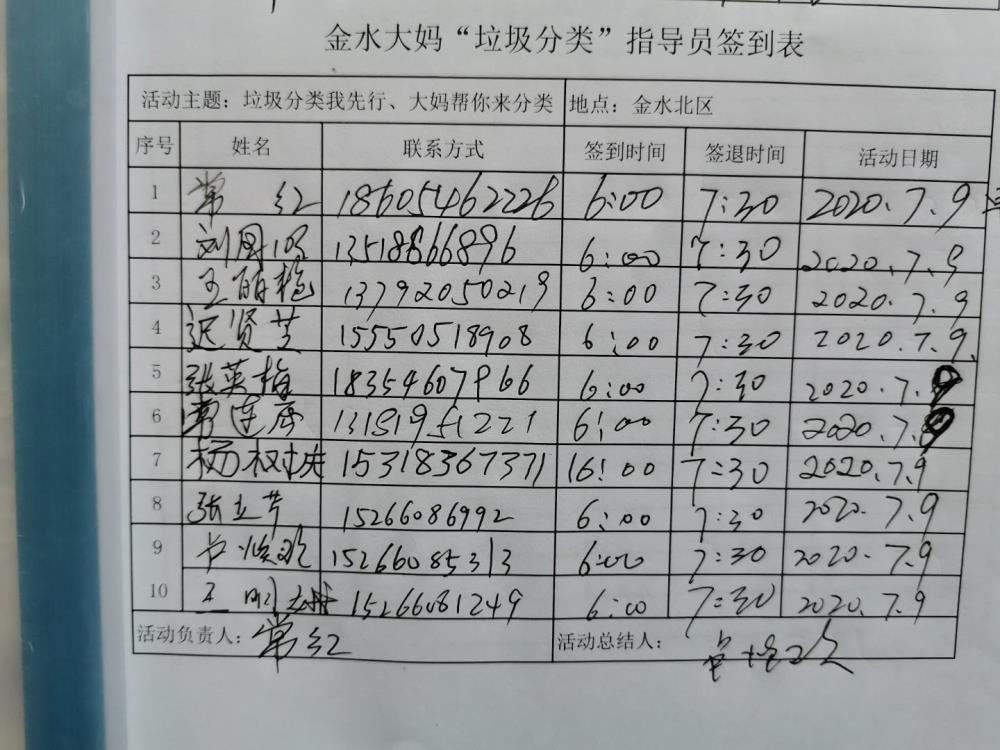 金水大妈“垃圾分类”指导员签到表
活动主题：垃圾分类我先行、大妈帮你来分类 地点：金水北区
序号 姓名 联系方式 签到时间 签退时间 活动日期
1 常红 18605462226 6:00 7:30 2020.7.9
2 13518866896 6:00 7:30 2020.7.9
3 王丽艳 13792050219 6:00 7:30 2020.7.9
4 迟贤芝 15550518908 6:00 7:30 2020.7.9
5 张英梅 18354607966 6:00 7:30 2020.7.9
6 常连居 13181951221 6:00 7:30 2020.7.9
7 15318367371 16:00 7:30 2020.7.9
8 张立芹 15266086992 6:00 7:30 2020.7.9
9 15266085313 6:00 7:30 2020.7.9
10 王明 15266081249 6:00 7:30 2020.7.9
活动负责人：常红 活动总结人：